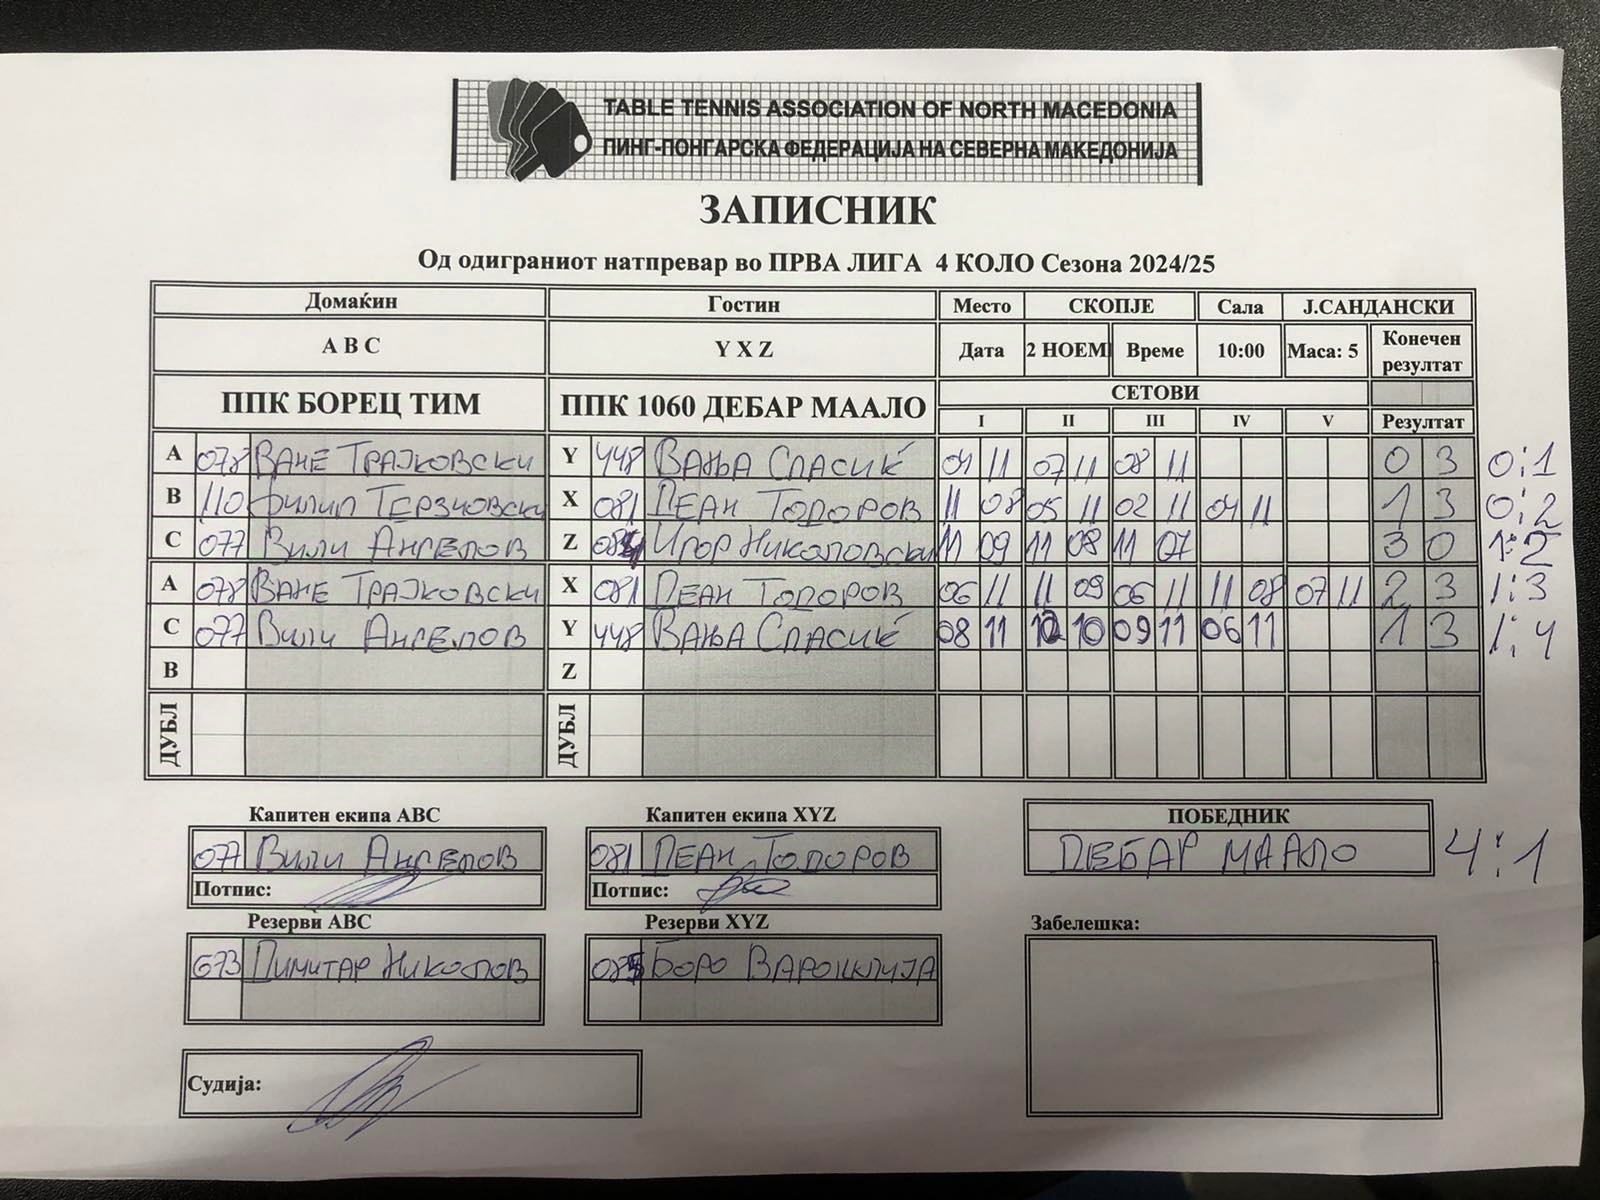 TABLE TENNIS ASSOCIATION OF NORTH MACEDONIA
ПИНГ-ПОНГАРСКА ФЕДЕРАЦИЈА НА СЕВЕРНА МАКЕДОНИЈА
ЗАПИСНИК
Од одиграниот натпревар во ПРВА ЛИГА 4 КОЛО Сезона 2024/25
Домаќин Гостин Место СКОПЈЕ Сала Ј.САНДАНСКИ
A B C Y X Z Дата 2 НОЕМ Време 10:00 Маса: 5 Конечен резултат
ППК БОРЕЦ ТИМ ППК 1060 ДЕБАР МААЛО СЕТОВИ
I II III IV V Резултат
A 078 ВАНЕ ТРАЈКОВСКИ Y 448 ВАЊА СПАСИЌ 04 11 07 11 08 11 0 3 0:1
B 110 ФИЛИП ТЕРЗИОВСКИ X 081 ДЕАН ТОДОРОВ 11 08 05 11 02 11 04 11 1 3 0:2
C 077 ВИЛИ АНГЕЛОВ Z ИГОР НИКОЛОВСКИ 11 09 11 08 11 07 3 0 1:2
A 078 ВАНЕ ТРАЈКОВСКИ X 081 ДЕАН ТОДОРОВ 06 11 11 09 06 11 11 08 07 11 2 3 1:3
C 077 ВИЛИ АНГЕЛОВ Y 448 ВАЊА СПАСИЌ 08 11 12 10 09 11 06 11 1 3 1:4
B Z
ДУБЛ ДУБЛ
Капитен екипа ABC Капитен екипа XYZ ПОБЕДНИК
077 ВИЛИ АНГЕЛОВ 081 ДЕАН ТОДОРОВ ДЕБАР МААЛО 4:1
Потпис: Потпис:
Резерви ABC Резерви XYZ Забелешка:
673 ДИМИТАР НИКОЛОВ БОРО ВАРОШЛИЈА
Судија: